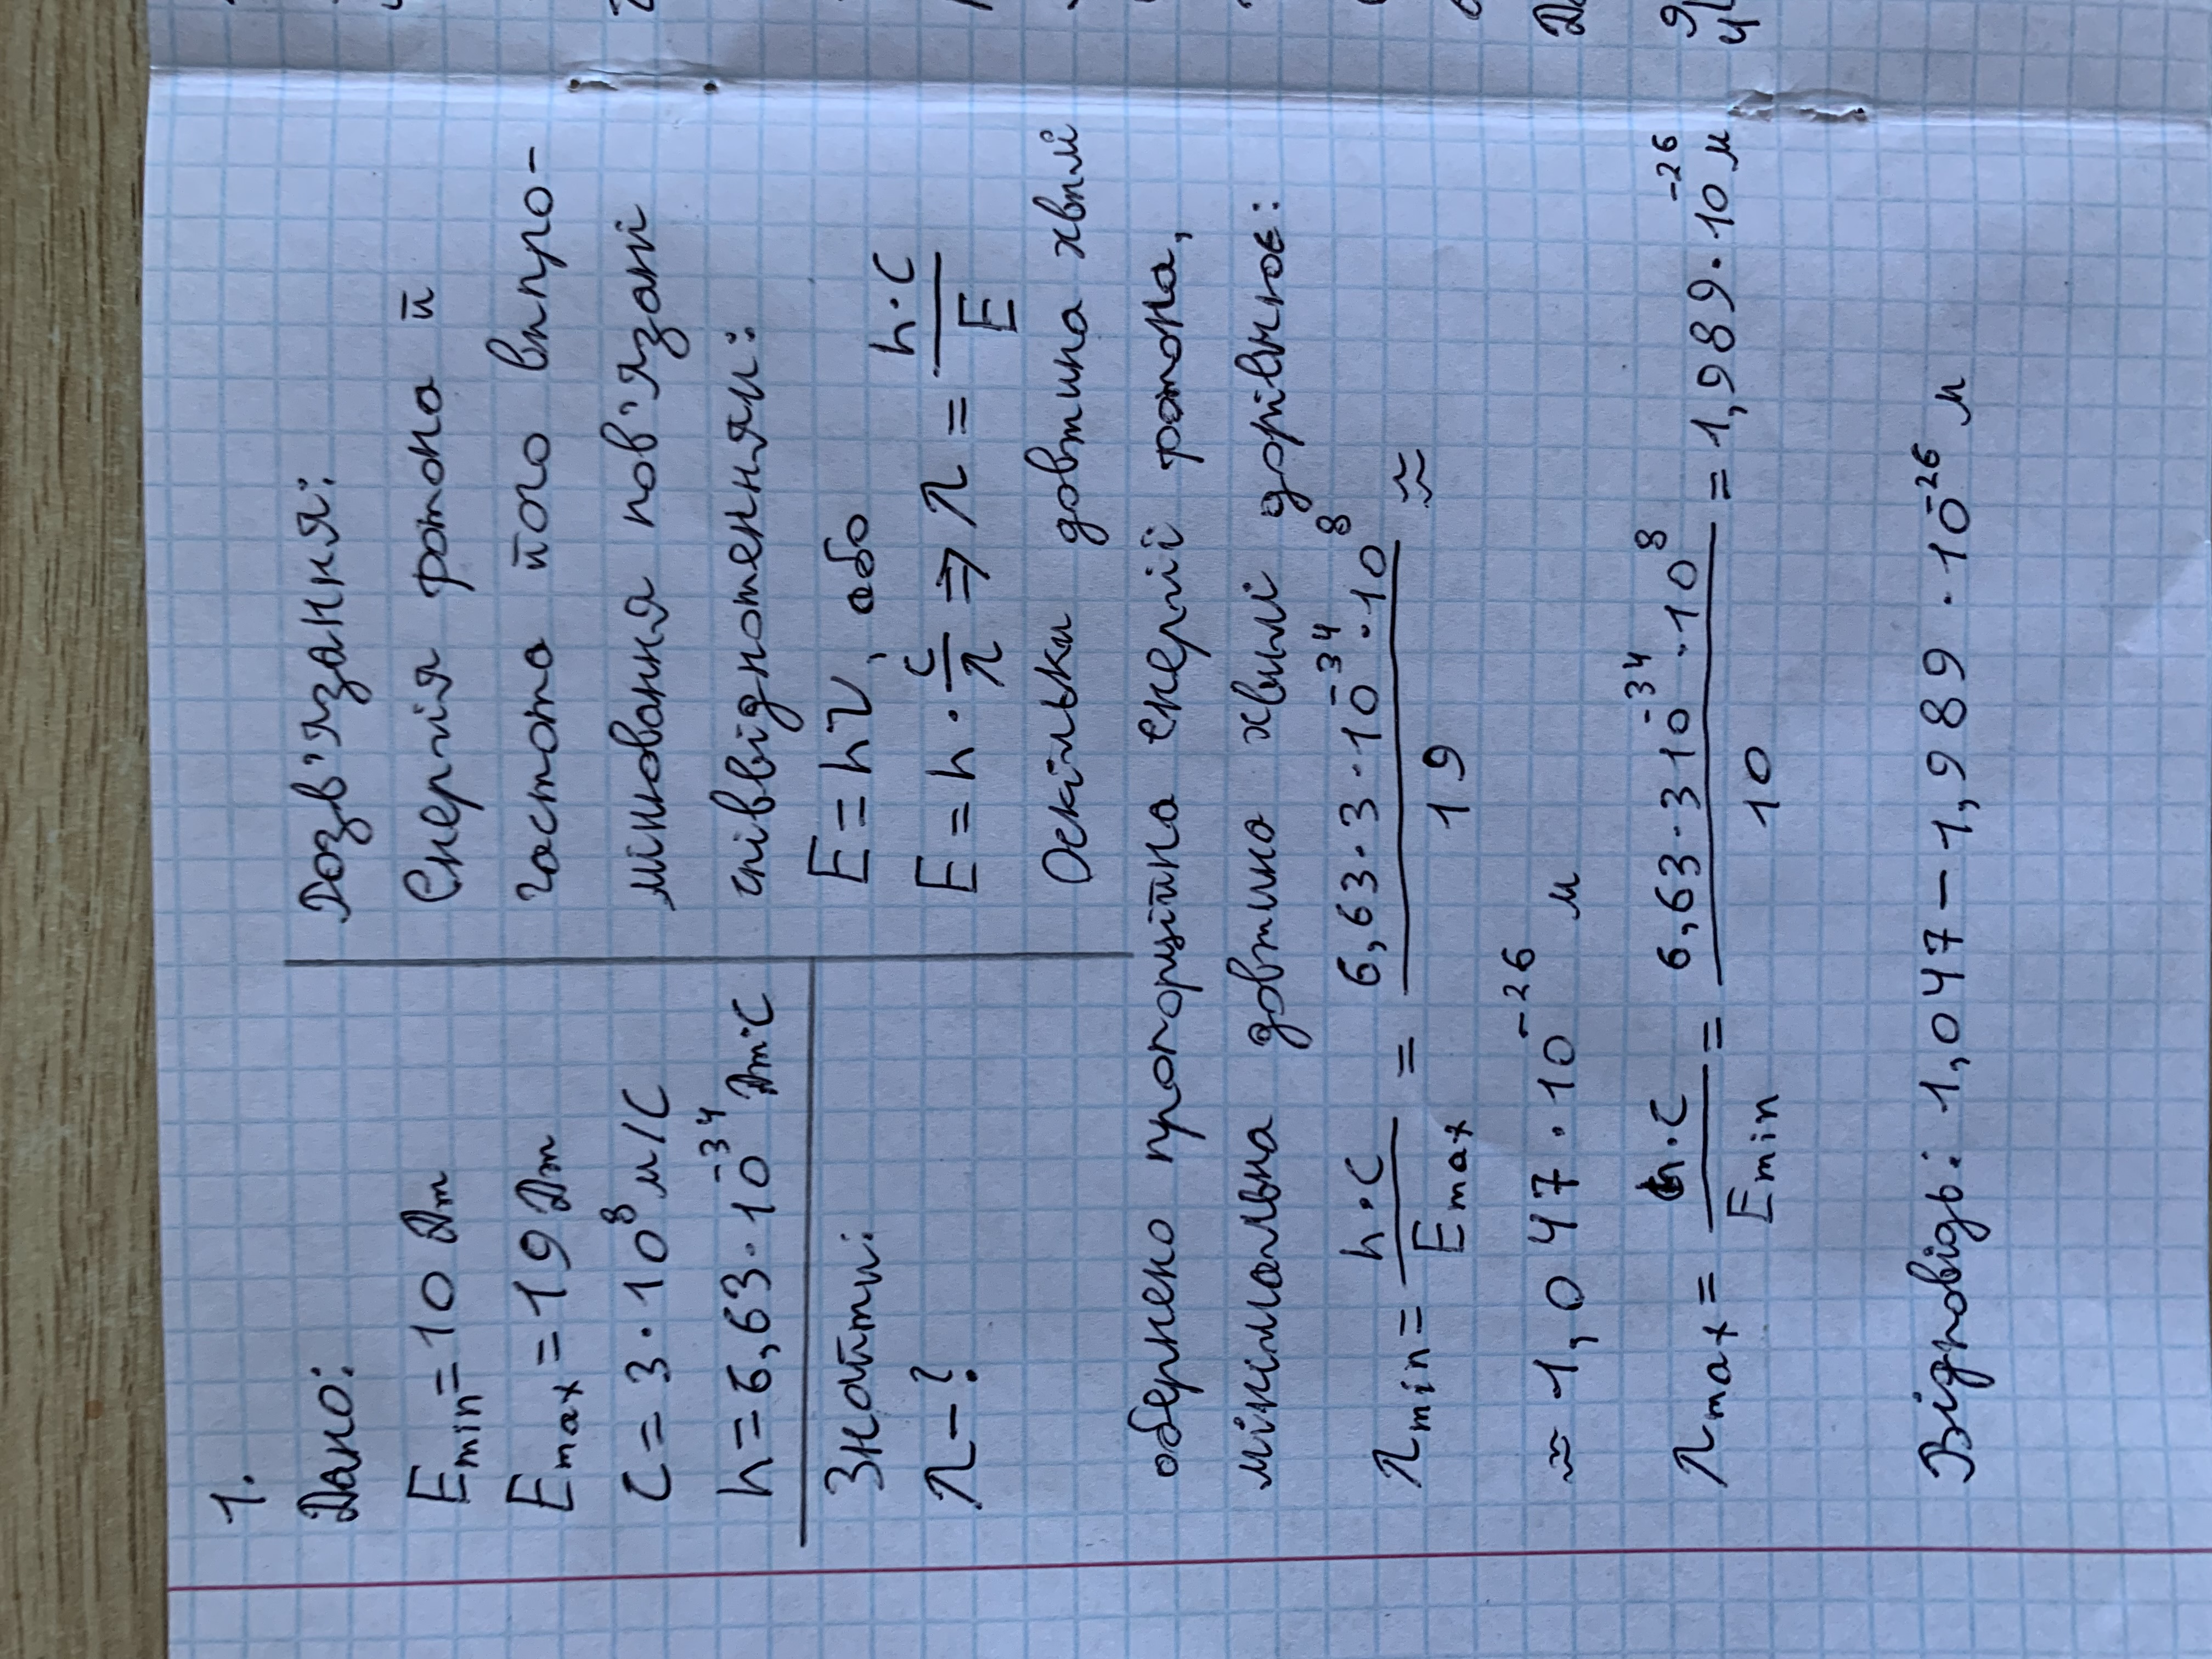 1.
Дано:
E min = 10 Дж
E max = 19 Дж
c = 3 · 10⁸ м/с
h = 6,63 · 10⁻³⁴ Дж·с
Знайти:
λ - ?
Розв'язання:
Енергія фотона й
частота його випро-
мінювання пов'язані
співвідношенням:
E = hν, або
E = h · c/λ ⇒ λ = h·c/E
Оскільки довжина хвилі
обернено пропорційна енергії фотона,
мінімальна довжина хвилі дорівнює:
λ min = h·c/E max = 6,63 · 3 · 10⁻³⁴ · 10⁸/19 ≈
≈ 1,047 · 10⁻²⁶ м
λ max = h·c/E min = 6,63 · 3 10⁻³⁴ · 10⁸/10 = 1,989 · 10⁻²⁶ м
Відповідь: 1,047 – 1,989 · 10⁻²⁶ м